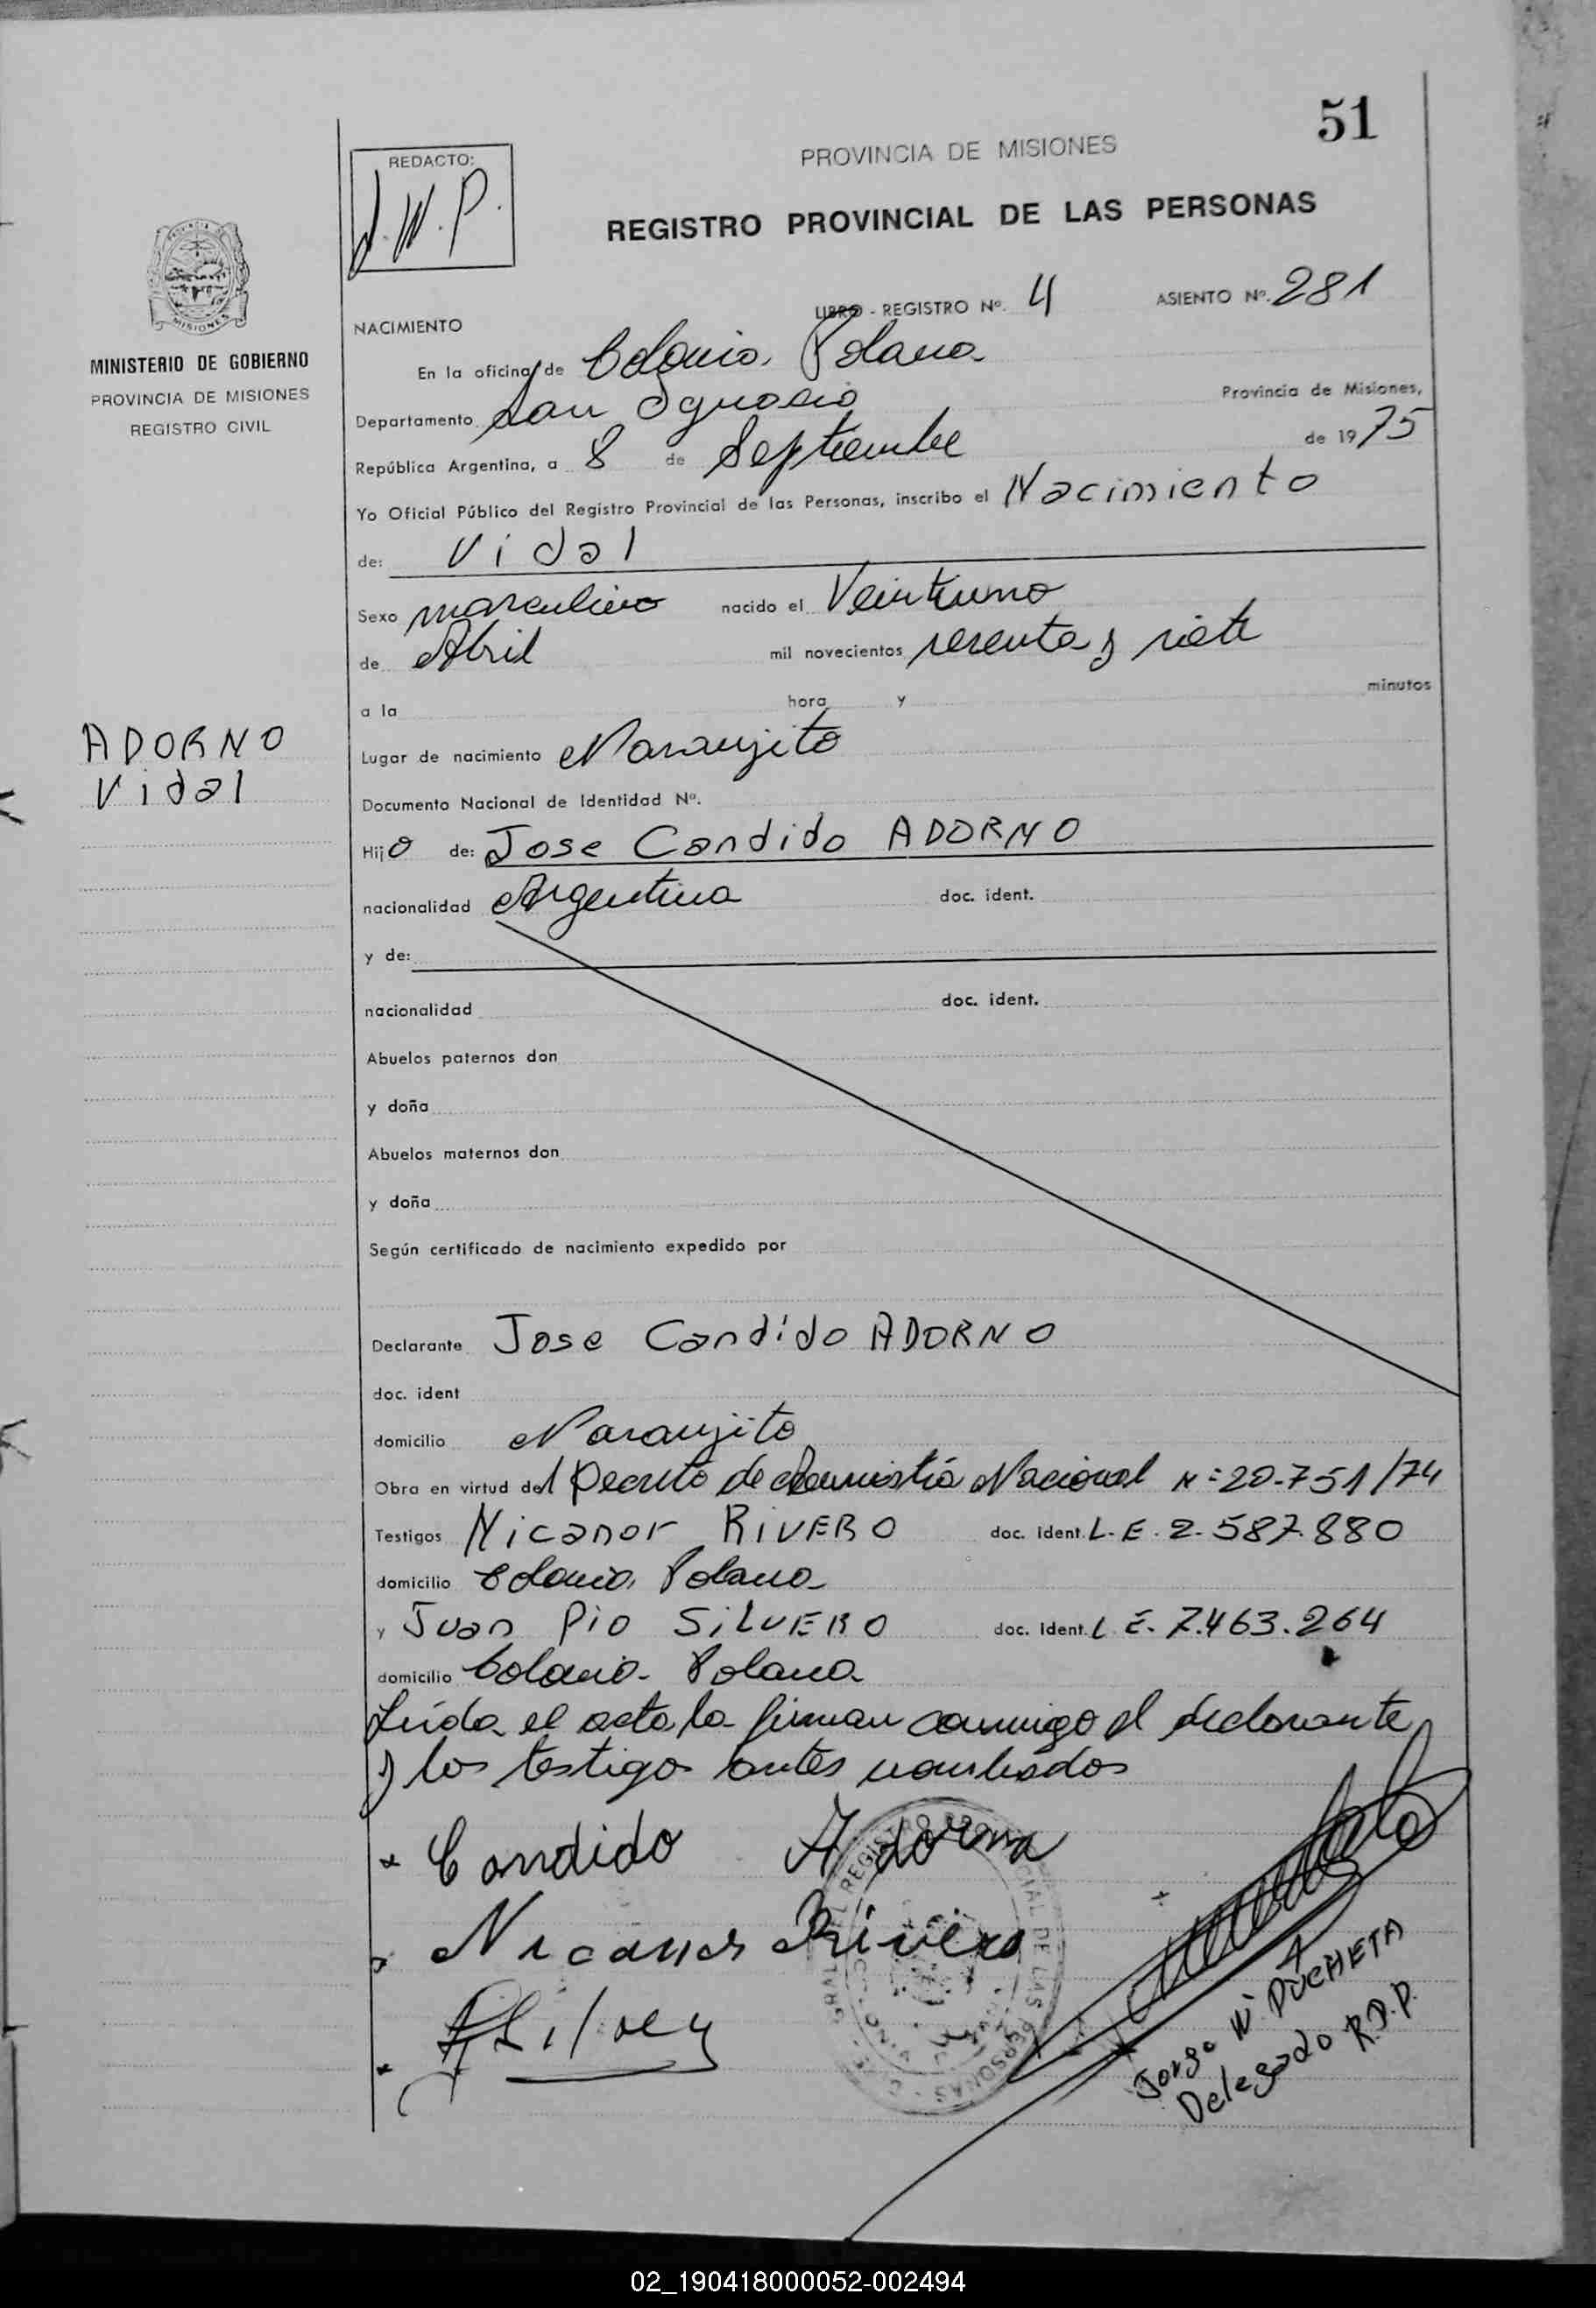 51
PROVINCIA DE MISIONES
REDACTO:
J.W.P.
REGISTRO PROVINCIAL DE LAS PERSONAS
LIBRO - REGISTRO Nº. 4 ASIENTO Nº. 281
MISIONES
MINISTERIO DE GOBIERNO
PROVINCIA DE MISIONES
REGISTRO CIVIL
NACIMIENTO
En la oficina de Colonia Polana
Departamento San Ignacio Provincia de Misiones,
República Argentina, a 8 de Septiembre de 1975
Yo Oficial Público del Registro Provincial de las Personas, inscribo el Nacimiento
de: Vidal
Sexo masculino nacido el Veintiuno
de Abril mil novecientos sesenta y siete
a la hora y minutos
ADORNO
Vidal
Lugar de nacimiento Naranjito
Documento Nacional de Identidad Nº.
Hijo de: Jose Candido ADORNO
nacionalidad Argentina doc. ident.
y de:
nacionalidad doc. ident.
Abuelos paternos don
y doña
Abuelos maternos don
y doña
Según certificado de nacimiento expedido por
Declarante Jose Candido ADORNO
doc. ident
domicilio Naranjito
Obra en virtud del Decreto de Amnistia Nacional Nº 20.751/74
Testigos Nicanor RIVERO doc. ident. L.E. 2.587.880
domicilio Colonia Polana
y Juan Pio SILVERO doc. ident. L.E. 7.463.264
domicilio Colonia Polana
Leida el acta la firman conmigo el declarante
y los testigos antes nombrados
Candido Adorno
Nicanor Rivero
REGISTRO PROVINCIAL DE LAS PERSONAS
Jorge W. PUCHETA
Delegado R.P.P.
02_190418000052-002494